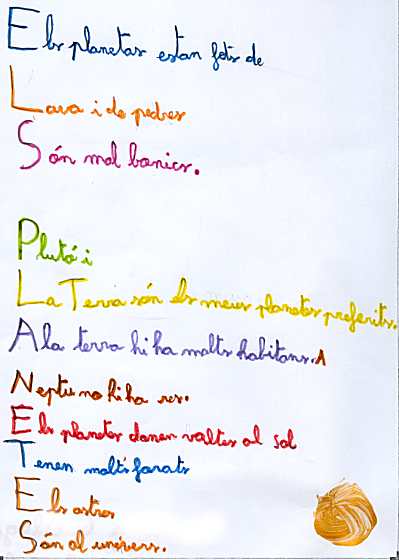 Els planetas estan fets de
Lava i de pedres
Són mol bonics.
Plutó i
La Terra són els meus planetes preferits.
A la terra hi ha molts habitans. A
Neptu no hi ha res.
Els planetes donen valtes al sol
Tenen molts forats
Els astres
Són al univers.